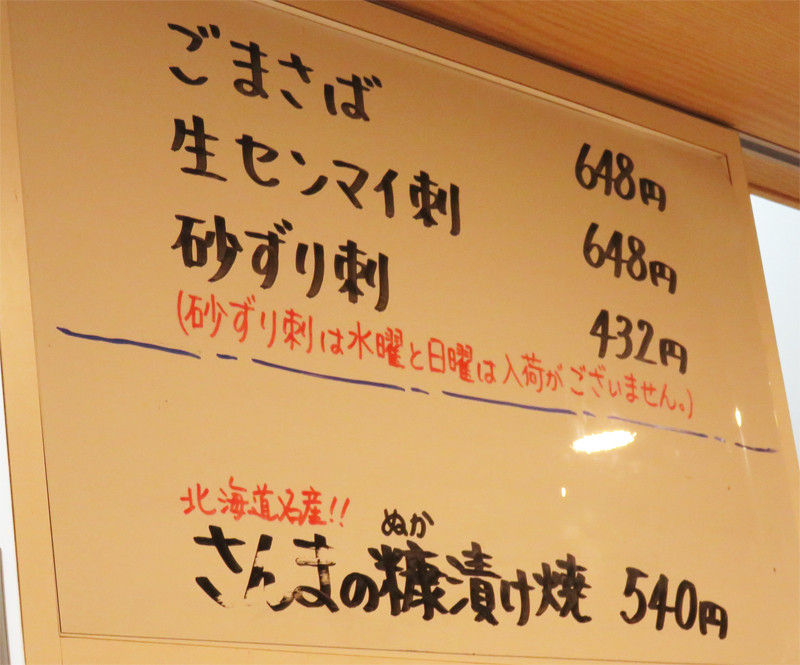 ごまさば 648円
生センマイ刺 648円
砂ずり刺 432円
(砂ずり刺は水曜と日曜は入荷がございません。)
北海道名産!!
ぬか
さんまの糠漬け焼 540円